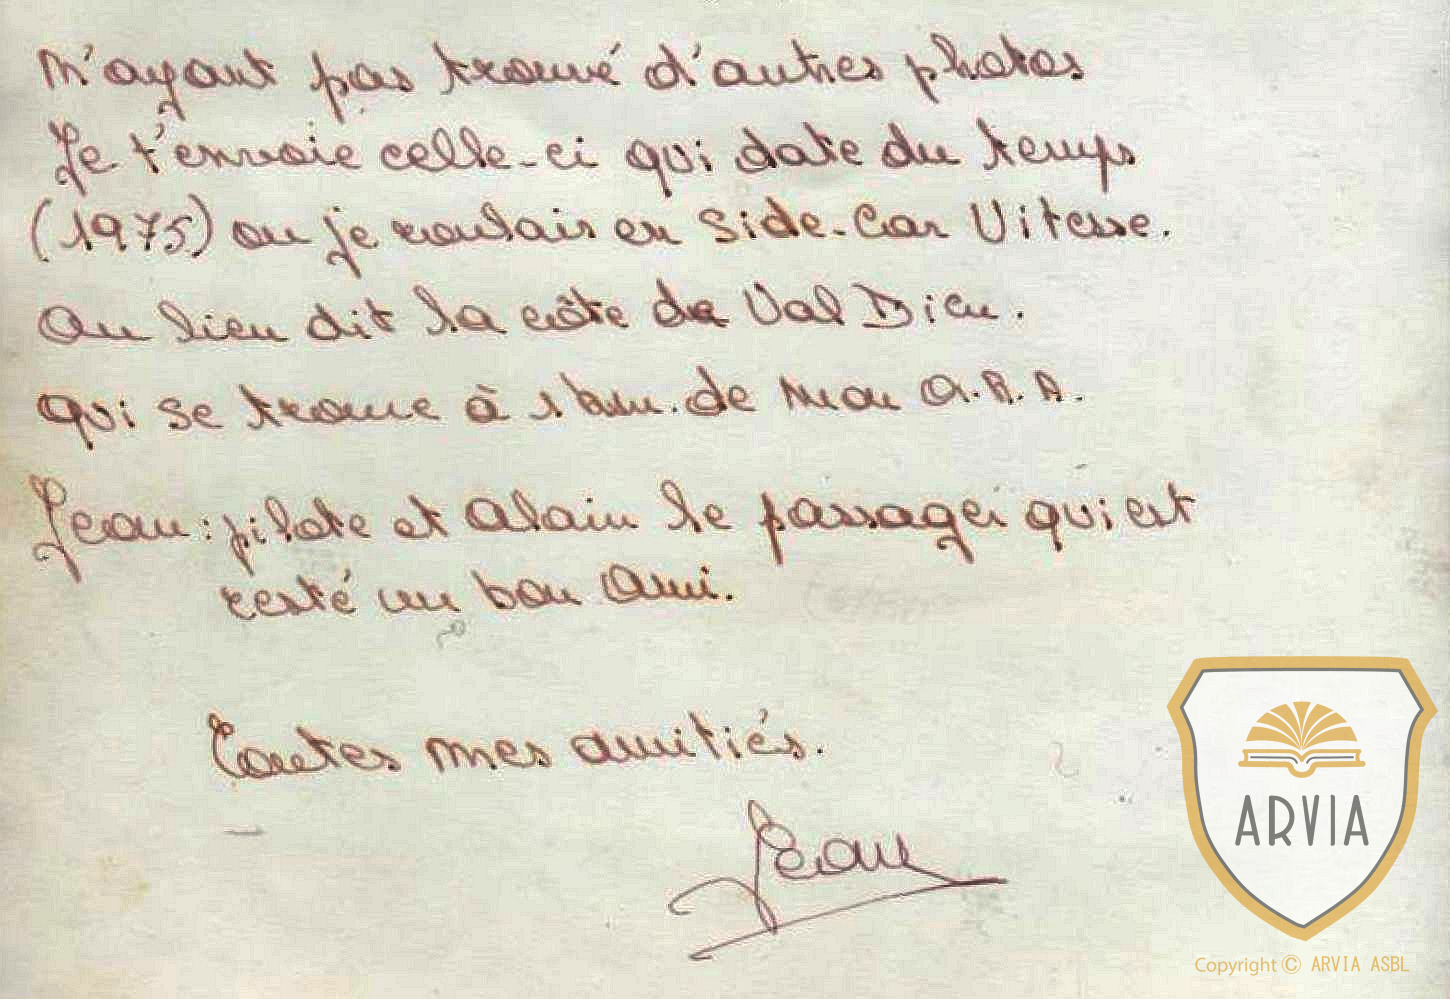 N'ayant pas trouvé d'autres photos
Je t'envoie celle-ci qui date du temps
(1975) ou je roulais en Side-Car Vitesse.
Au lieu dit la côte de Val Dieu.
qui se trouve à 1 km. de Mon
Jean : pilote et Alain le passager qui est
resté un bon Ami.
Toutes mes amitiés.
Jean
ARVIA
Copyright © ARVIA ASBL